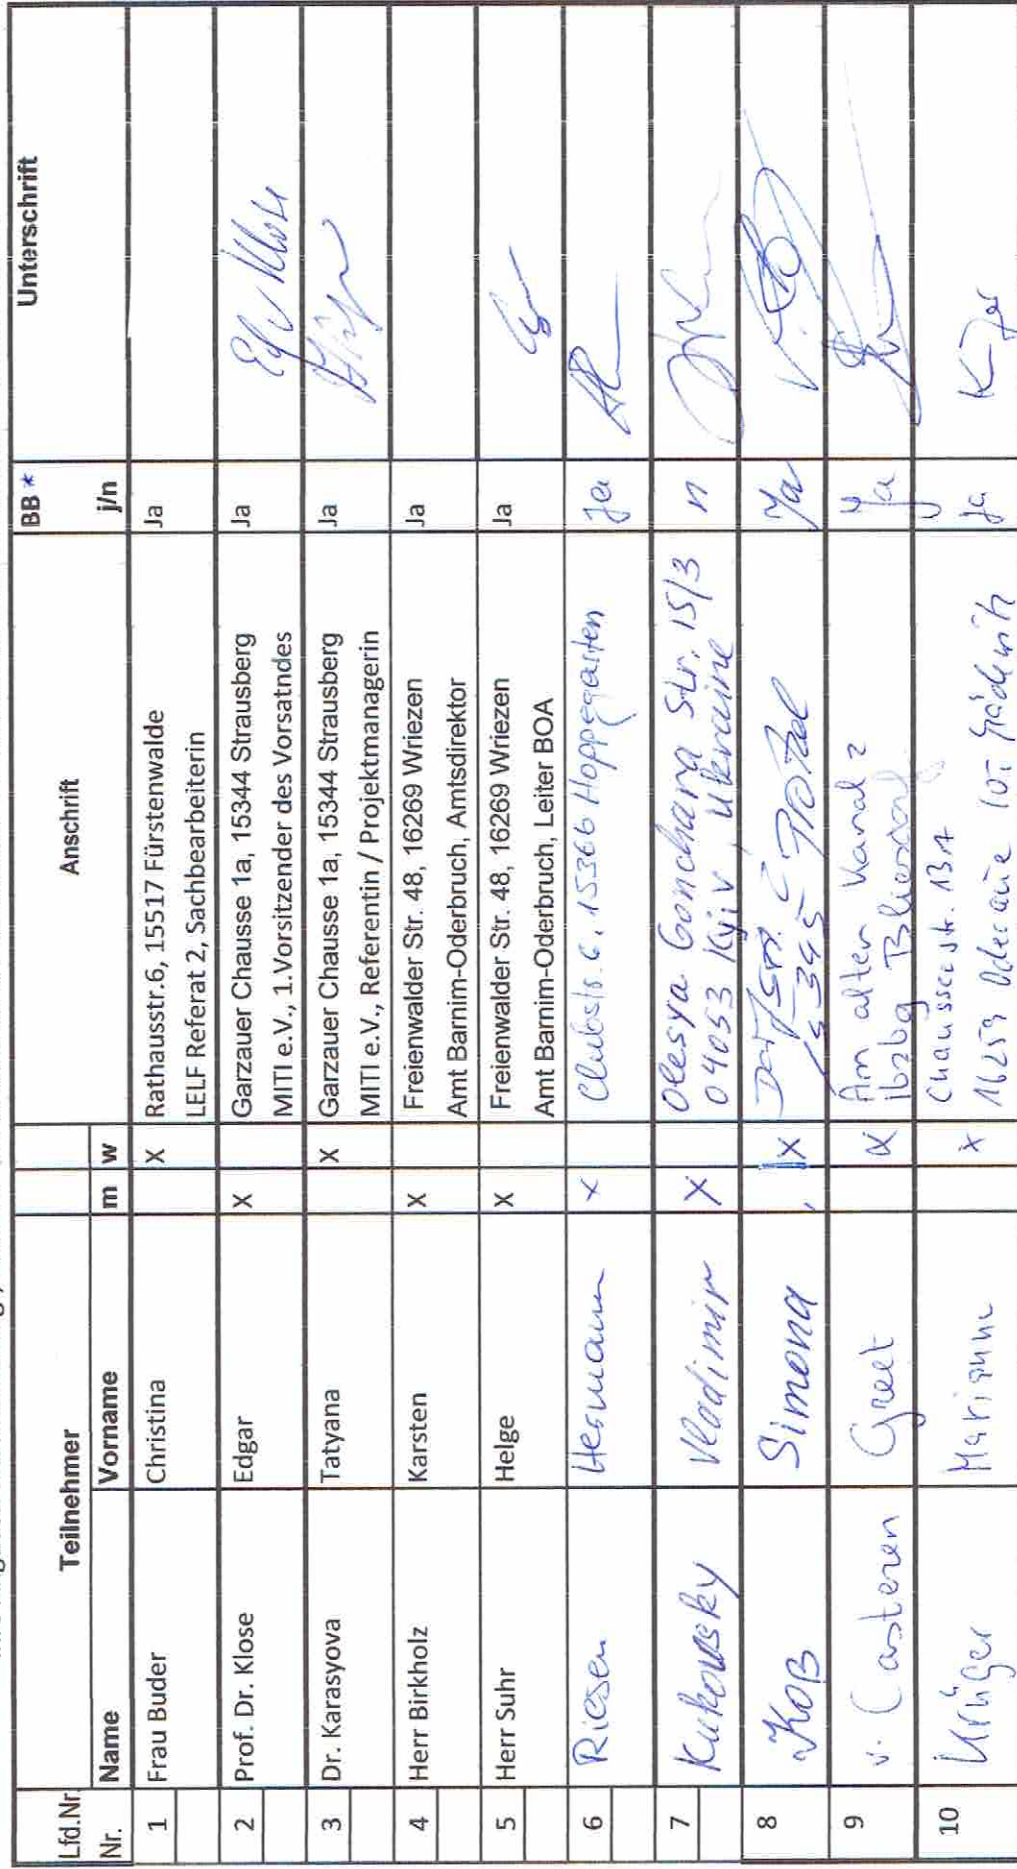 Lfd.Nr. Teilnehmer Anschrift BB * Unterschrift
Nr. Name Vorname m w j/n
1 Frau Buder Christina X Rathausstr.6, 15517 Fürstenwalde Ja
LELF Referat 2, Sachbearbeiterin
2 Prof. Dr. Klose Edgar X Garzauer Chausse 1a, 15344 Strausberg Ja
MITI e.V., 1.Vorsitzender des Vorsatndes
3 Dr. Karasyova Tatyana X Garzauer Chausse 1a, 15344 Strausberg Ja
MITI e.V., Referentin / Projektmanagerin
4 Herr Birkholz Karsten X Freienwalder Str. 48, 16269 Wriezen Ja
Amt Barnim-Oderbruch, Amtsdirektor
5 Herr Suhr Helge X Freienwalder Str. 48, 16269 Wriezen Ja
Amt Barnim-Oderbruch, Leiter BOA
6 Riesen Hermann x Clubstr. 6, 15366 Hoppegarten Ja
7 Kukowsky Vladimir X Olesya Gonchara Str. 15/3 n
04053 Kyiv, Ukraine
8 Koß Simona x Ja
15345 Prötzel
9 v. Casteren Greet x Am alten Kanal 2 Ja
Bliesdorf
10 Krüger Marianne x Chausseestr. 13A Ja
16259 Oderaue